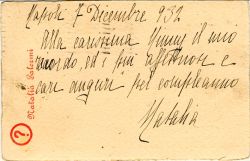 Napoli 7 Dicembre 932
Alla carissima Ginny il mio
ricordo, ed i più affettuosi e
cari auguri pel compleanno
Natalia
Natalia Salerni
?